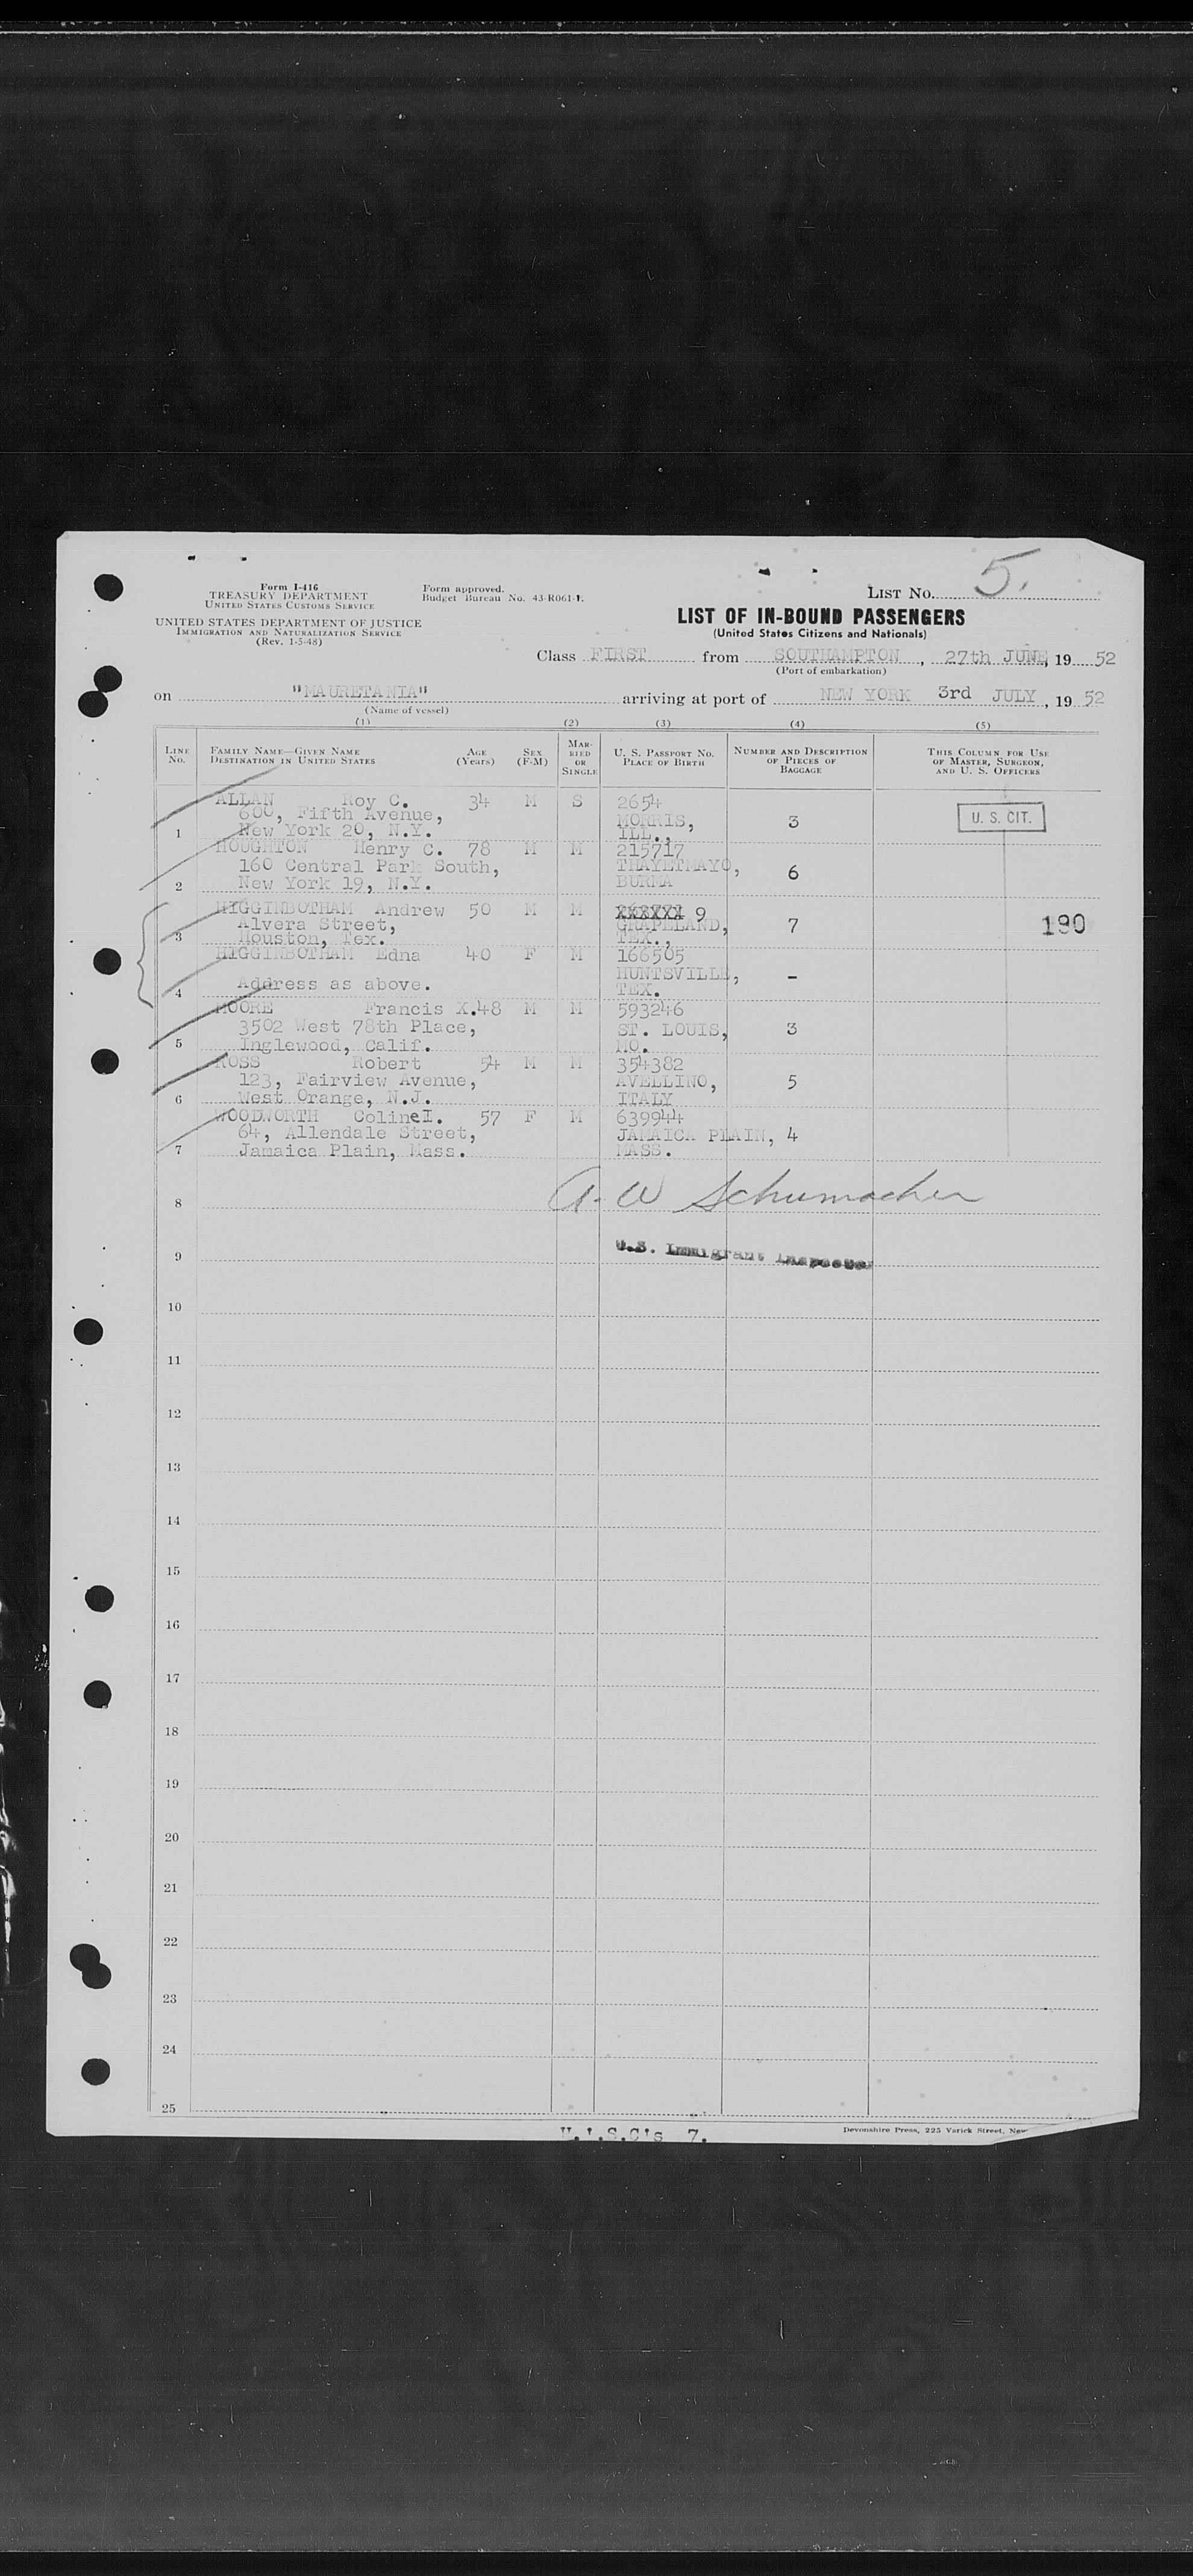 Form I-416
TREASURY DEPARTMENT
UNITED STATES CUSTOMS SERVICE
UNITED STATES DEPARTMENT OF JUSTICE
IMMIGRATION AND NATURALIZATION SERVICE
(Rev. 1-5-48)
Form approved.
Budget Bureau No. 43-R061-1.
LIST NO. 5.
LIST OF IN-BOUND PASSENGERS
(United States Citizens and Nationals)
Class FIRST from SOUTHAMPTON, 27th JUNE, 19 52
(Port of embarkation)
on "MAURETANIA" arriving at port of NEW YORK 3rd JULY, 19 52
(Name of vessel)
(1) (2) (3) (4) (5)
LINE NO. FAMILY NAME—GIVEN NAME DESTINATION IN UNITED STATES AGE (Years) SEX (F-M) MARRIED OR SINGLE U. S. PASSPORT NO. PLACE OF BIRTH NUMBER AND DESCRIPTION OF PIECES OF BAGGAGE THIS COLUMN FOR USE OF MASTER, SURGEON, AND U. S. OFFICERS
ALLAN Roy C. 34 M S 2654
600, Fifth Avenue, MORRIS, 3 U. S. CIT.
1 New York 20, N.Y. ILL.,
HOUGHTON Henry C. 78 M M 215717
160 Central Park South, THAYETMAYO, 6
2 New York 19, N.Y. BURMA
HIGGINBOTHAM Andrew 50 M M XXXXXX 9
Alvera Street, GRAPELAND, 7 190
3 Houston, Tex. TEX.,
HIGGINBOTHAM Edna 40 F M 166505
HUNTSVILLE, -
4 Address as above. TEX.
MOORE Francis X. 48 M M 593246
3502 West 78th Place, ST. LOUIS, 3
5 Inglewood, Calif. MO.
ROSS Robert 54 M M 354382
123, Fairview Avenue, AVELLINO, 5
6 West Orange, N.J. ITALY
WOODWORTH Coline I. 57 F M 639944
64, Allendale Street, JAMAICA PLAIN, 4
7 Jamaica Plain, Mass. MASS.
8 A. W Schumacher
9 U.S. Immigrant Inspector
10
11
12
13
14
15
16
17
18
19
20
21
22
23
24
25
U.'.S.C's 7.
Devonshire Press, 225 Varick Street, New